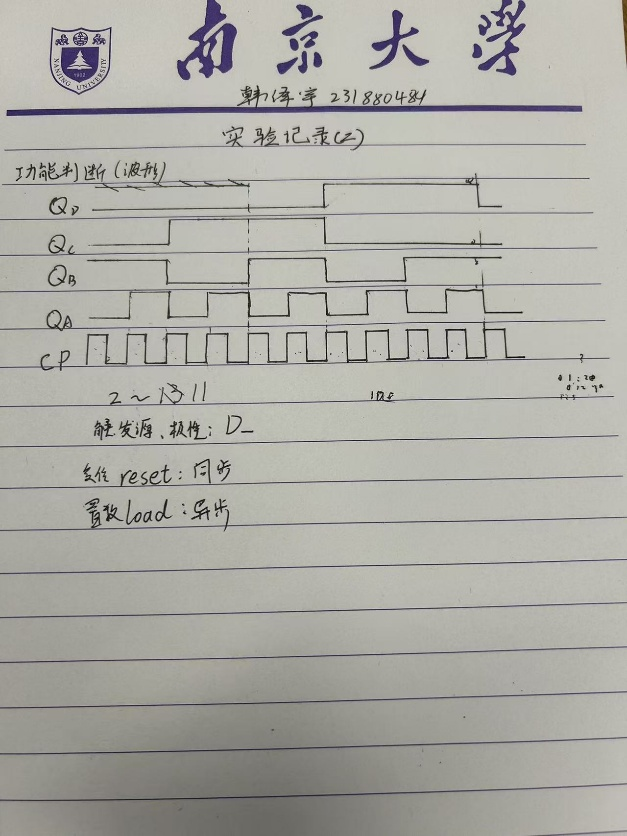 南京大學
NANJING UNIVERSITY
1902
韩泽宇 231880484
实验记录(2)
功能判断(波形)
Q_D
Q_C
Q_B
Q_A
CP
2～11
触发源、极性: D_
复位 reset: 同步
置数 load: 异步